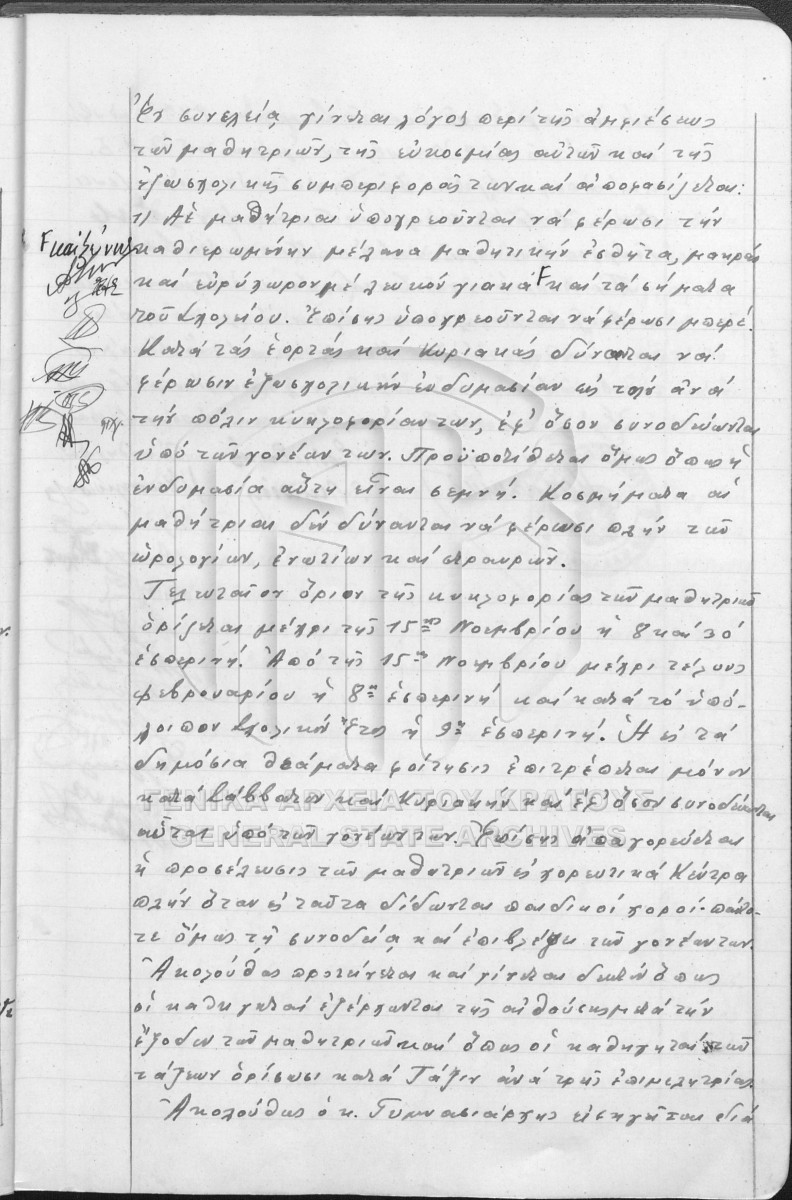 Ἐν συνεχείᾳ γίνεται λόγος περὶ τῆς ἀμφιέσεως
τῶν μαθητριῶν, τῆς εὐκοσμίας αὐτῶν καὶ τῆς
ἐξωσχολικῆς συμπεριφορᾶς των καὶ ἀποφασίζεται:
1) Αἱ μαθήτριαι ὑποχρεοῦνται νὰ φέρωσι τὴν
καθιερωμένην μέλανα μαθητικὴν ἐσθῆτα, μακρὰν
καὶ εὐρύχωρον μὲ λευκὸν γιακὰ F καὶ τὰ σήματα
F καὶ ζώνην
τοῦ Σχολείου. Ἐπίσης ὑποχρεοῦνται νὰ φέρωσι μπερέ.
Κατὰ τὰς ἑορτὰς καὶ Κυριακὰς δύνανται νὰ
φέρωσιν ἐξωσχολικὴν ἐνδυμασίαν εἰς τὴν ἀνὰ
τὴν πόλιν κυκλοφορίαν των, ἐφ' ὅσον συνοδεύωνται
ὑπὸ τῶν γονέων των. Προϋποτίθεται ὅμως ὅπως ἡ
ἐνδυμασία αὕτη εἶναι σεμνή. Κοσμήματα αἱ
μαθήτριαι δὲν δύνανται νὰ φέρωσι πλὴν τῶν
ὡρολογίων, ἐνωτίων καὶ σταυρῶν.
Τελευταῖον ὅριον τῆς κυκλοφορίας τῶν μαθητριῶν
ὁρίζεται μέχρι τῆς 15ης Νοεμβρίου ἡ 8 καὶ 30'
ἑσπερινή. Ἀπὸ τῆς 15ης Νοεμβρίου μέχρι τέλους
Φεβρουαρίου ἡ 8η ἑσπερινὴ καὶ κατὰ τὸ ὑπό-
λοιπον Σχολικὸν Ἔτος ἡ 9η ἑσπερινή. Ἡ εἰς τὰ
δημόσια θεάματα φοίτησις ἐπιτρέπεται μόνον
κατὰ Σάββατον καὶ Κυριακὴν καὶ ἐφ' ὅσον συνοδεύωνται
αὗται ὑπὸ τῶν γονέων των. Ἐπίσης ἀπαγορεύεται
ἡ προσέλευσις τῶν μαθητριῶν εἰς χορευτικὰ Κέντρα
πλὴν ὅταν εἰς ταῦτα δίδωνται παιδικοὶ χοροί - πάντο-
τε ὅμως τῇ συνοδείᾳ καὶ ἐπιβλέψει τῶν γονέων των.
Ἀκολούθως προτείνεται καὶ γίνεται δεκτὸν ὅπως
οἱ καθηγηταὶ ἐξέρχωνται τῆς αἰθούσης μετὰ τὴν
ἔξοδον τῶν μαθητριῶν καὶ ὅπως οἱ καθηγηταὶ τῶν
τάξεων ὁρίσωσι κατὰ Τάξιν ἀνὰ τρεῖς ἐπιμελητρίας.
Ἀκολούθως ὁ κ. Γυμνασιάρχης εἰσηγεῖται διὰ
ΓΕΝΙΚΑ ΑΡΧΕΙΑ ΤΟΥ ΚΡΑΤΟΥΣ
GENERAL STATE ARCHIVES